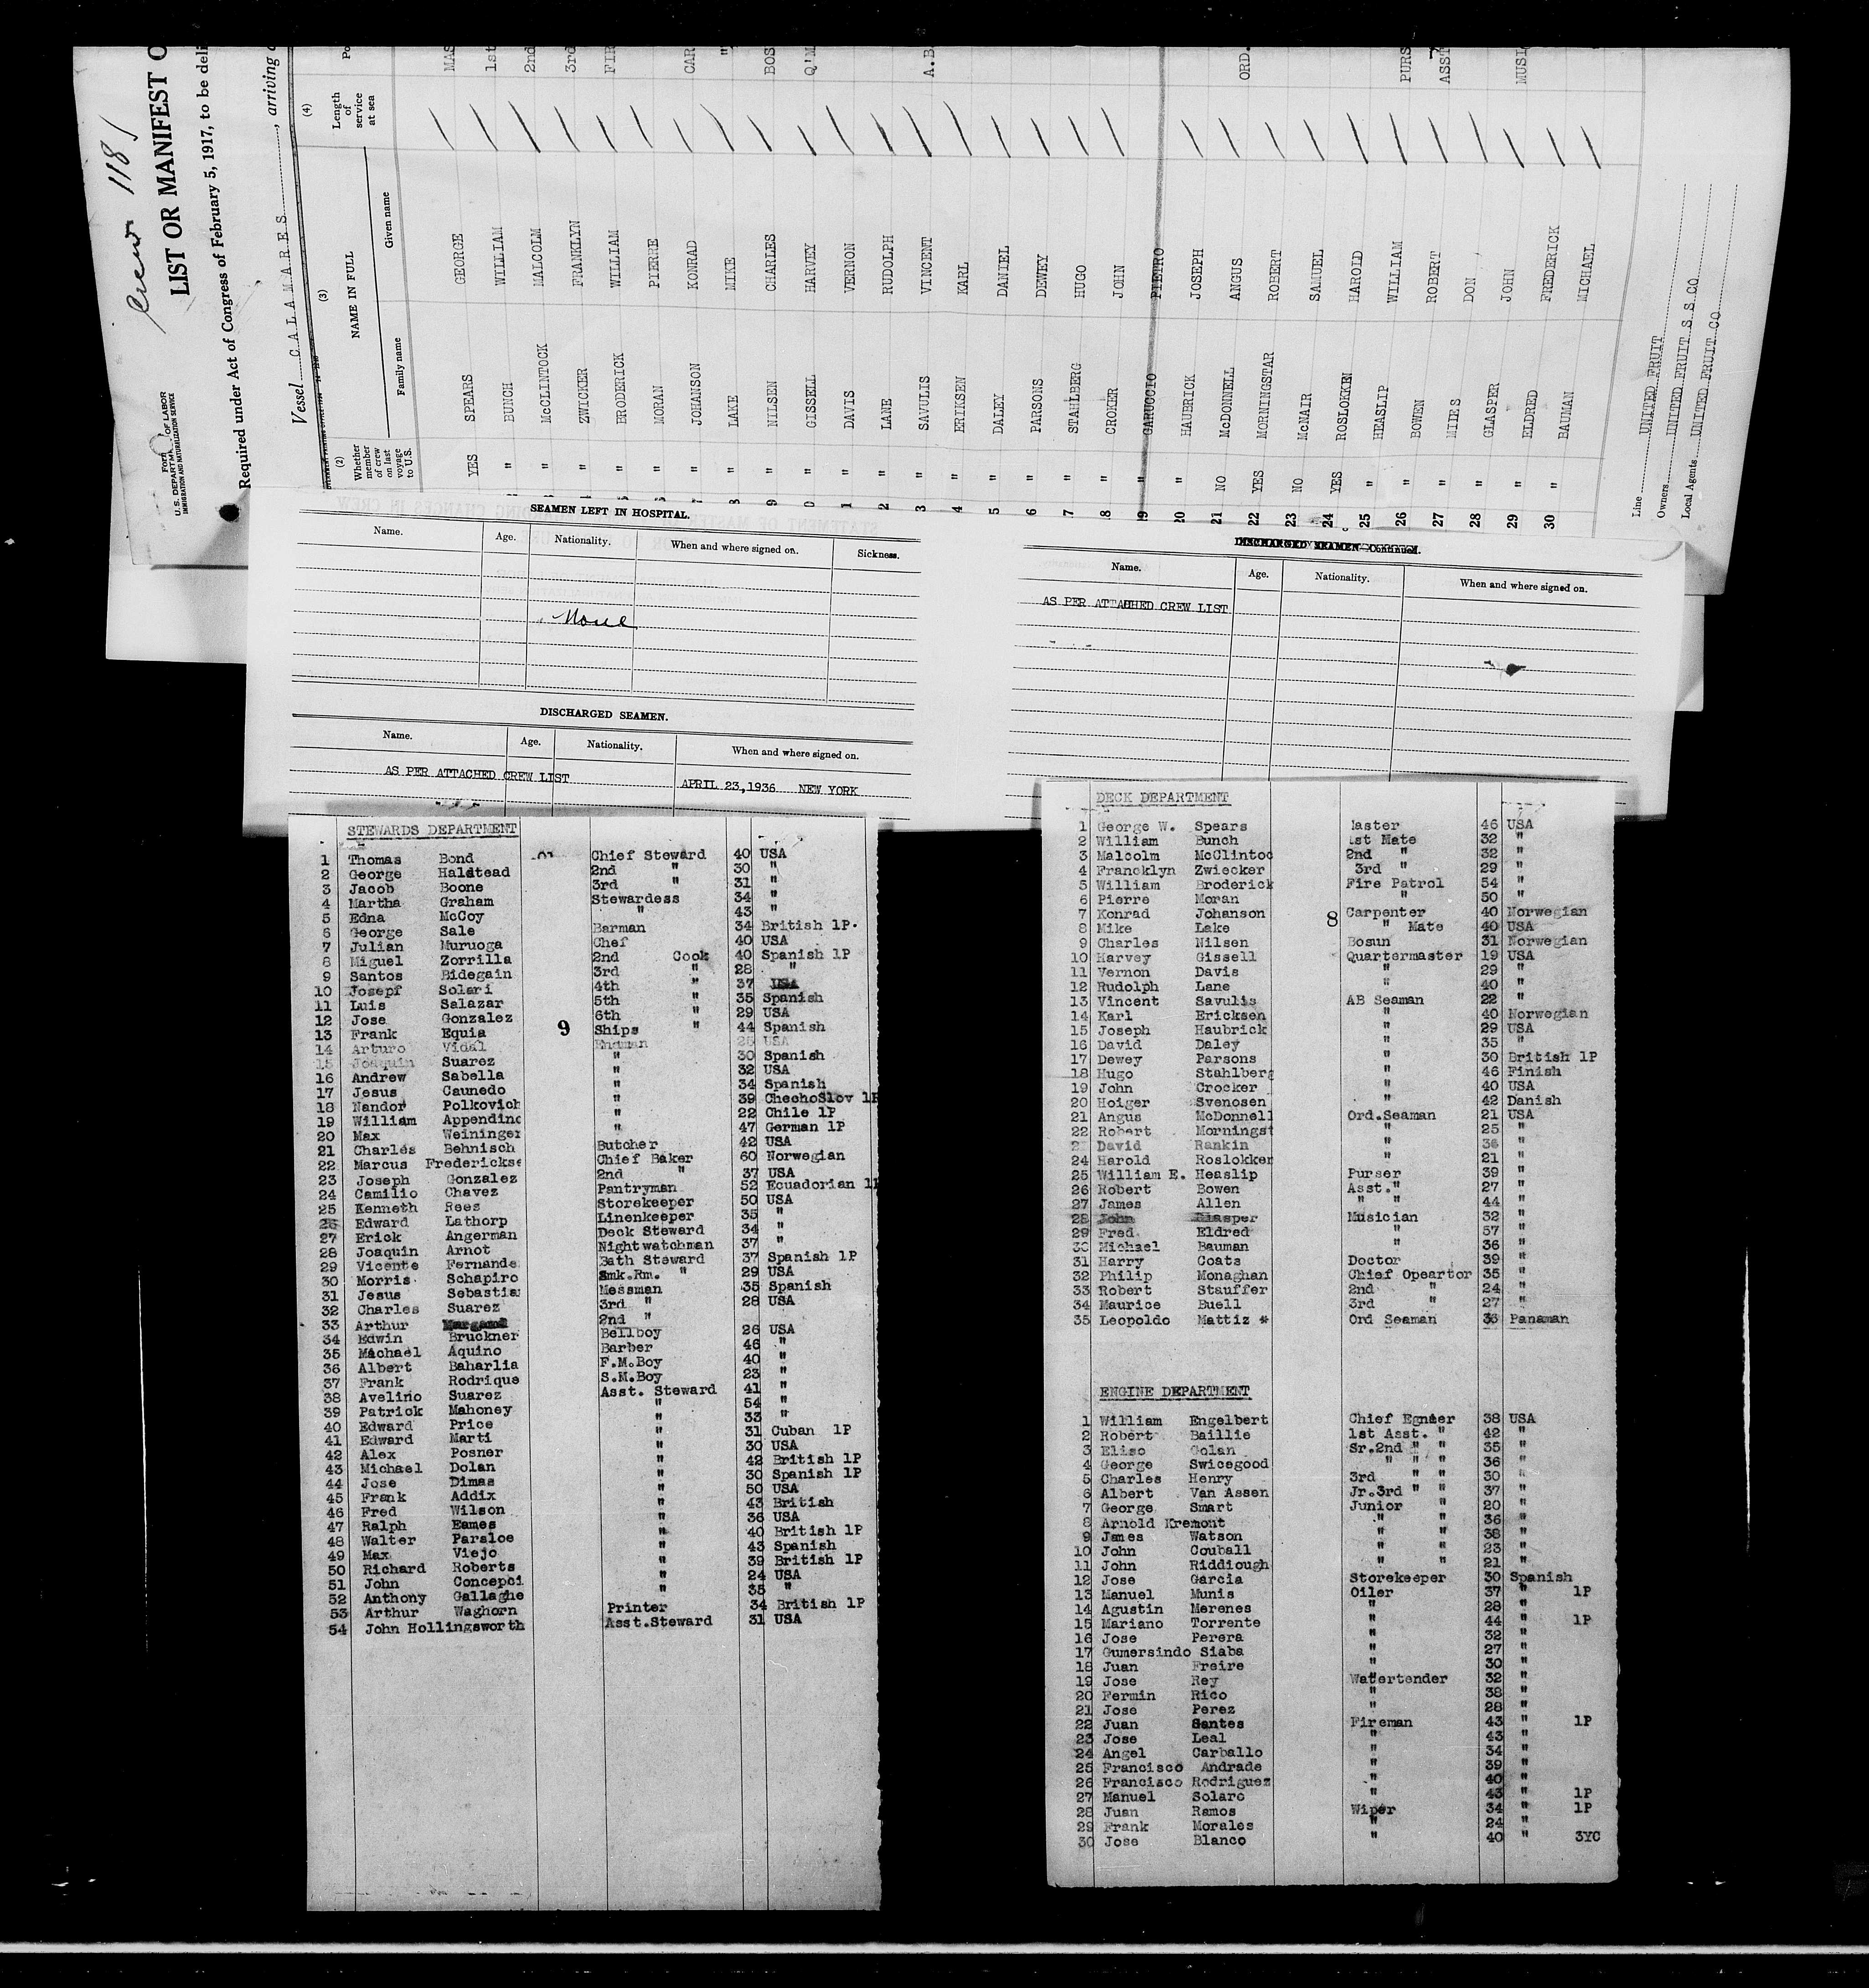 Crew 118
LIST OR MANIFEST O
Form
U.S. DEPARTMENT OF LABOR
IMMIGRATION AND NATURALIZATION SERVICE
Required under Act of Congress of February 5, 1917, to be deli
Vessel CALAMARES, arriving
(2) Whether member of crew on last voyage to U.S.
(3) NAME IN FULL
Family name Given name
(4) Length of service at sea
Po
YES SPEARS GEORGE MAS
" BUNCH WILLIAM 1st
" McCLINTOCK MALCOLM 2nd
" ZWICKER FRANKLYN 3rd
" BRODERICK WILLIAM FIR
" MORAN PIERRE
" JOHANSON KONRAD CAR
8 " LAKE MIKE "
9 " NILSEN CHARLES BOS
0 " GISSELL HARVEY Q'M
1 " DAVIS VERNON
2 " LANE RUDOLPH
3 " SAVULIS VINCENT A.B
4 " ERIKSEN KARL
5 " DALEY DANIEL
6 " PARSONS DEWEY
7 " STAHLBERG HUGO
8 " CROKER JOHN
9 " CARUCCIO PIETRO
20 " HAUBRICK JOSEPH
21 NO McDONNELL ANGUS ORD.
22 YES MORNINGSTAR ROBERT
23 NO McNAIR SAMUEL
24 YES ROSLOKKEN HAROLD
25 " HEASLIP WILLIAM PURS
26 " BOWEN ROBERT ASST
27 " MILES DON
28 " GLASPER JOHN MUSI
29 " ELDRED FREDERICK
30 " BAUMAN MICHAEL
Line UNITED FRUIT
Owners UNITED FRUIT S S CO
Local Agents UNITED FRUIT CO
SEAMEN LEFT IN HOSPITAL.
Name. Age. Nationality. When and where signed on. Sickness.
None
DISCHARGED SEAMEN.
Name. Age. Nationality. When and where signed on.
AS PER ATTACHED CREW LIST APRIL 23,1936 NEW YORK
DISCHARGED SEAMEN—Continued.
Name. Age. Nationality. When and where signed on.
AS PER ATTACHED CREW LIST
STEWARDS DEPARTMENT
1 Thomas Bond Chief Steward 40 USA
2 George Halstead 2nd " 30 "
3 Jacob Boone 3rd " 31 "
4 Martha Graham Stewardess 34 "
5 Edna McCoy " 43 "
6 George Sale Barman 34 British 1P.
7 Julian Muruoga Chef 40 USA
8 Miguel Zorrilla 2nd Cook 40 Spanish 1P
9 Santos Bidegain 3rd " 28 "
10 Josepf Solari 4th " 37 USA
11 Luis Salazar 5th " 35 Spanish
12 Jose Gonzalez 6th " 29 USA
13 Frank Equia 9 Ships " 44 Spanish
14 Arturo Vidal Endman 25 USA
15 Joaquin Suarez " 30 Spanish
16 Andrew Sabella " 32 USA
17 Jesus Caunedo " 34 Spanish
18 Nandor Polkovich " 39 ChechoSlov 1P
19 William Appendino " 22 Chile 1P
20 Max Weininger " 47 German 1P
21 Charles Behnisch Butcher 42 USA
22 Marcus Frederickse Chief Baker 60 Norwegian
23 Joseph Gonzalez 2nd " 37 USA
24 Camilio Chavez Pantryman 52 Ecuadorian 1P
25 Kenneth Rees Storekeeper 50 USA
26 Edward Lathorp Linenkeeper 35 "
27 Erick Angerman Deck Steward 34 "
28 Joaquin Arnot Nightwatchman 37 "
29 Vicente Fernande Bath Steward 37 Spanish 1P
30 Morris Schapiro Smk.Rm. " 29 USA
31 Jesus Sebastia Messman 35 Spanish
32 Charles Suarez 3rd " 28 USA
33 Arthur 2nd "
34 Edwin Bruckner Bellboy 26 USA
35 Michael Aquino Barber 46 "
36 Albert Baharlia F.M.Boy 40 "
37 Frank Rodrique S.M.Boy 23 "
38 Avelino Suarez Asst. Steward 41 "
39 Patrick Mahoney " 54 "
40 Edward Price " 33 "
41 Edward Marti " 31 Cuban 1P
42 Alex Posner " 30 USA
43 Michael Dolan " 42 British 1P
44 Jose Dimas " 30 Spanish 1P
45 Frank Addix " 50 USA
46 Fred Wilson " 43 British
47 Ralph Eames " 36 USA
48 Walter Paraloe " 40 British 1P
49 Max Viejo " 43 Spanish
50 Richard Roberts " 39 British 1P
51 John Concepci " 24 USA
52 Anthony Gallaghe " 35 "
53 Arthur Waghorn Printer 34 British 1P
54 John Hollingsworth Asst.Steward 31 USA
DECK DEPARTMENT
1 George W. Spears Master 46 USA
2 William Bunch 1st Mate 32 "
3 Malcolm McClintoc 2nd " 32 "
4 Francklyn Zwiecker 3rd " 29 "
5 William Broderick Fire Patrol 54 "
6 Pierre Moran " 50 "
7 Konrad Johanson 8 Carpenter 40 Norwegian
8 Mike Lake " Mate 40 USA
9 Charles Nilsen Bosun 31 Norwegian
10 Harvey Gissell Quartermaster 19 USA
11 Vernon Davis " 29 "
12 Rudolph Lane " 40 "
13 Vincent Savulis AB Seaman 22 "
14 Karl Ericksen " 40 Norwegian
15 Joseph Haubrick " 29 USA
16 David Daley " 35 "
17 Dewey Parsons " 30 British 1P
18 Hugo Stahlberg " 46 Finish
19 John Crocker " 40 USA
20 Hoiger Svenosen " 42 Danish
21 Angus McDonnell Ord.Seaman 21 USA
22 Robert Morningst " 25 "
2 David Rankin " 36 "
24 Harold Roslokken " 21 "
25 William E. Heaslip Purser 39 "
26 Robert Bowen Asst." 27 "
27 James Allen " " 44 "
28 John Glasper Musician 32 "
29 Fred Eldred " 57 "
30 Michael Bauman " 36 "
31 Harry Coats Doctor 39 "
32 Philip Monaghan Chief Opeartor 35 "
33 Robert Stauffer 2nd " 24 "
34 Maurice Buell 3rd " 27 "
35 Leopoldo Mattiz * Ord Seaman 36 Panaman
ENGINE DEPARTMENT
1 William Engelbert Chief Egnier 38 USA
2 Robert Baillie 1st Asst. " 42 "
3 Eliso Golan Sr.2nd " " 35 "
4 George Swicegood " " " 36 "
5 Charles Henry 3rd " " 30 "
6 Albert Van Assen Jr.3rd " " 37 "
7 George Smart Junior " 20 "
8 Arnold Kremont " " 36 "
9 James Watson " " 38 "
10 John Couball " " 23 "
11 John Riddiough " " 21 "
12 Jose Garcia Storekeeper 30 Spanish
13 Manuel Munis Oiler 37 " 1P
14 Agustin Merenes " 28 "
15 Mariano Torrente " 44 " 1P
16 Jose Perera " 32 "
17 Gumersindo Siaba " 27 "
18 Juan Freire " 30 "
19 Jose Rey Watertender 32 "
20 Fermin Rico " 38 "
21 Jose Perez " 28 "
22 Juan Santos Fireman 43 " 1P
23 Jose Leal " 43 "
24 Angel Carballo " 34 "
25 Francisco Andrade " 39 "
26 Francisco Rodriguez " 40 "
27 Manuel Solaro " 43 " 1P
28 Juan Ramos Wiper 34 " 1P
29 Frank Morales " 24 "
30 Jose Blanco " 40 " 3YC